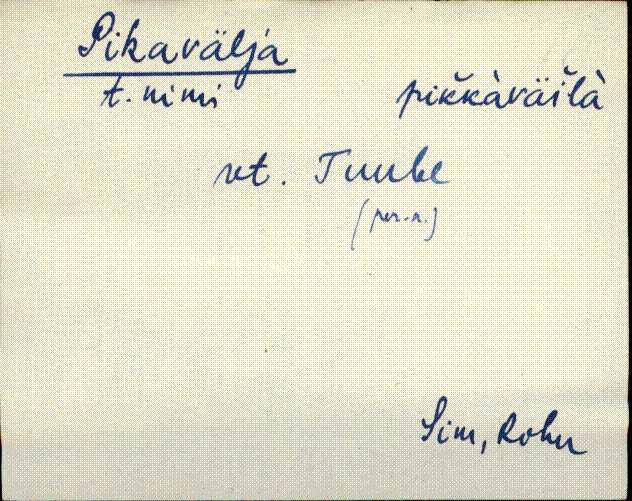 Pikavälja
t. nimi pikkàväĭlà
vt. Tuube
(per.-n.)
Sim, Rohu